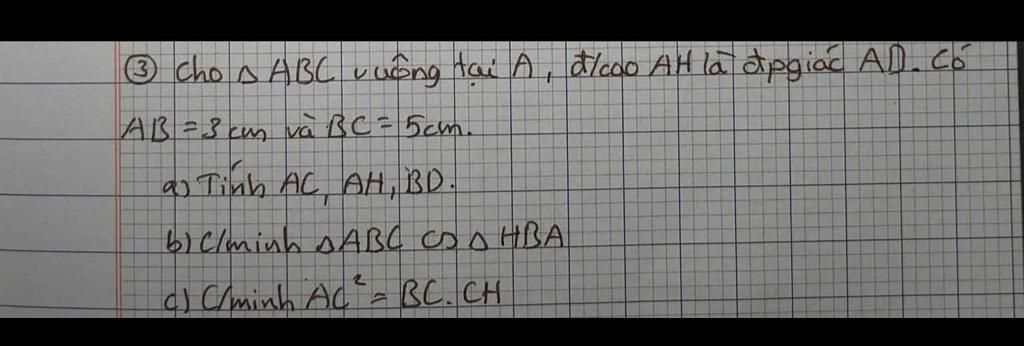 ③ Cho Δ ABC vuông tại A, đ/cao AH là đpgiác AD. Có
AB = 3 cm và BC = 5cm.
a) Tính AC, AH, BD.
b) C/minh Δ ABC ∽ Δ HBA
c) C/minh AC² = BC. CH